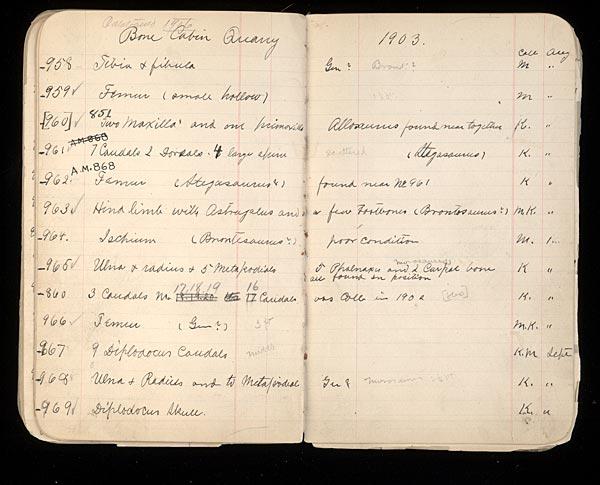 Bone Cabin Quarry 1903.
Coll Aug
958 Tibia & fibula Gen? M "
959 ✓ Femur (small hollow) M "
[960] ✓ 851 Two Maxilla and one Allosaurus found near together K. "
A.M. 868
961 7 Caudals 2 Dorsals 4 large spur scattered (Stegasaurus) K. "
A.M. 868
962. Femur (Stegasaurus?) found near No 961 K "
963 ✓ Hind limb with Astragalus and a few Footbones (Brontosaurus?) M.K. "
964. Ischium (Brontosaurus?) poor condition M.
965 ✓ Ulna & radius & 5 Metapodials 5 Phalanges and 2 Carpal bone K "
all found in position
17.18.19 16
860 3 Caudals No 17 Caudals was Coll in 1902 K. "
966 ✓ Femur (Gen?) M.K. "
967 9 Diplodocus Caudals K.M Sept
968 Ulna & Radius and Metapodial Gen? K. "
969 ✓ Diplodocus Skull. K. "